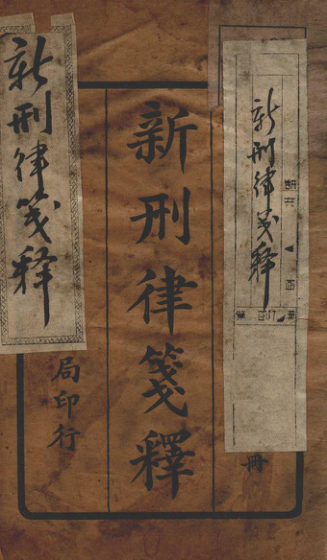 新刑律笺释
冊
新刑律箋釋
新刑律笺释
局印行